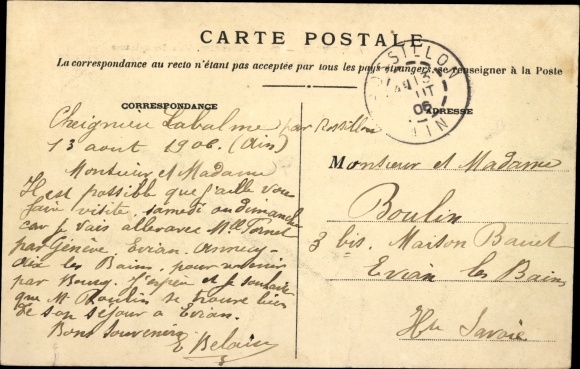 CARTE POSTALE
La correspondance au recto n'étant pas acceptée par tous les pays étrangers, se renseigner à la Poste
CORRESPONDANCE
Cheignieu Labalme par Rossillon
13 aout 1906. (Ain)
Monsieur et Madame
Il est possible que j'aille vous
faire visite, samedi ou dimanche
car je vais aller avec Mlle
par Genève Evian. Annecy.
Aix les Bains. pour revenir
par Bourg. J'espère et je souhaite
que Mr Boulin se trouve bien
de son séjour à Evian.
Bons Souvenirs
E Belain
ROSSILLON
13
AOUT
06
AIN
ADRESSE
Monsieur et Madame
Boulin
3 bis. Maison
Evian les Bains
Hte Savoie